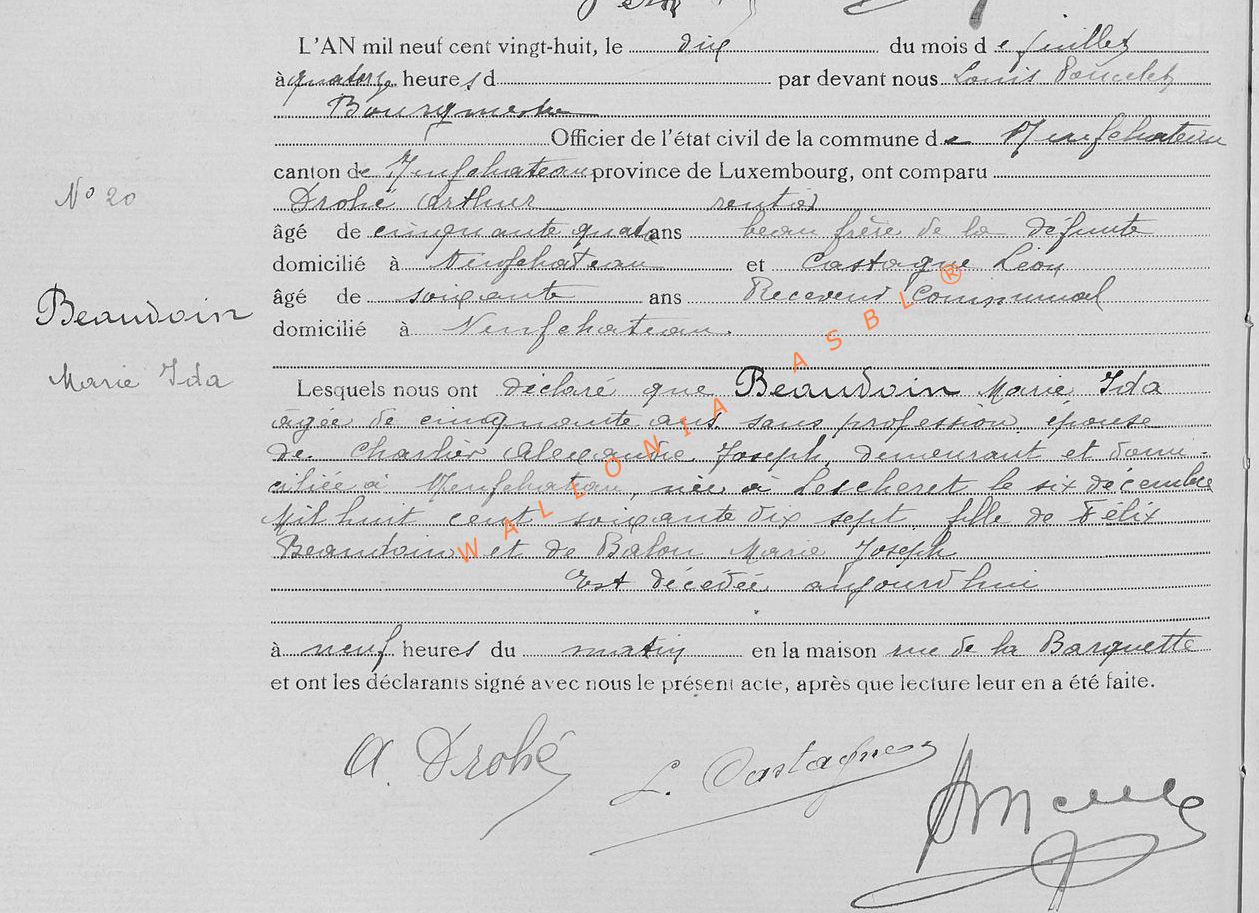 L'AN mil neuf cent vingt-huit, le dix du mois de juillet
à quatorze heures d par devant nous Louis Poncelet
Bourgmestre
Officier de l'état civil de la commune de Neufchateau
canton de Neufchateau province de Luxembourg, ont comparu
N° 20
Drohé Arthur rentier
âgé de cinquante quatre ans beau frère de la défunte
domicilié à Neufchateau et Castagne Léon
âgé de soixante ans Receveur Communal
domicilié à Neufchateau.
Beaudoin
Marie Ida
Lesquels nous ont déclaré que Beaudoin Marie Ida
agée de cinquante ans sans profession, épouse
de Charlier Alexandre Joseph, demeurant et domi-
ciliée à Neufchateau, née à Lescheret le six décembre
Mil huit cent soixante dix sept, fille de Félix
Beaudoin et de Balon Marie Joseph
Est décédée aujourd'hui
à neuf heures du matin en la maison rue de la Barquette
et ont les déclarants signé avec nous le présent acte, après que lecture leur en a été faite.
A. Drohé L. Castagne
WALLONIA ASBL ®